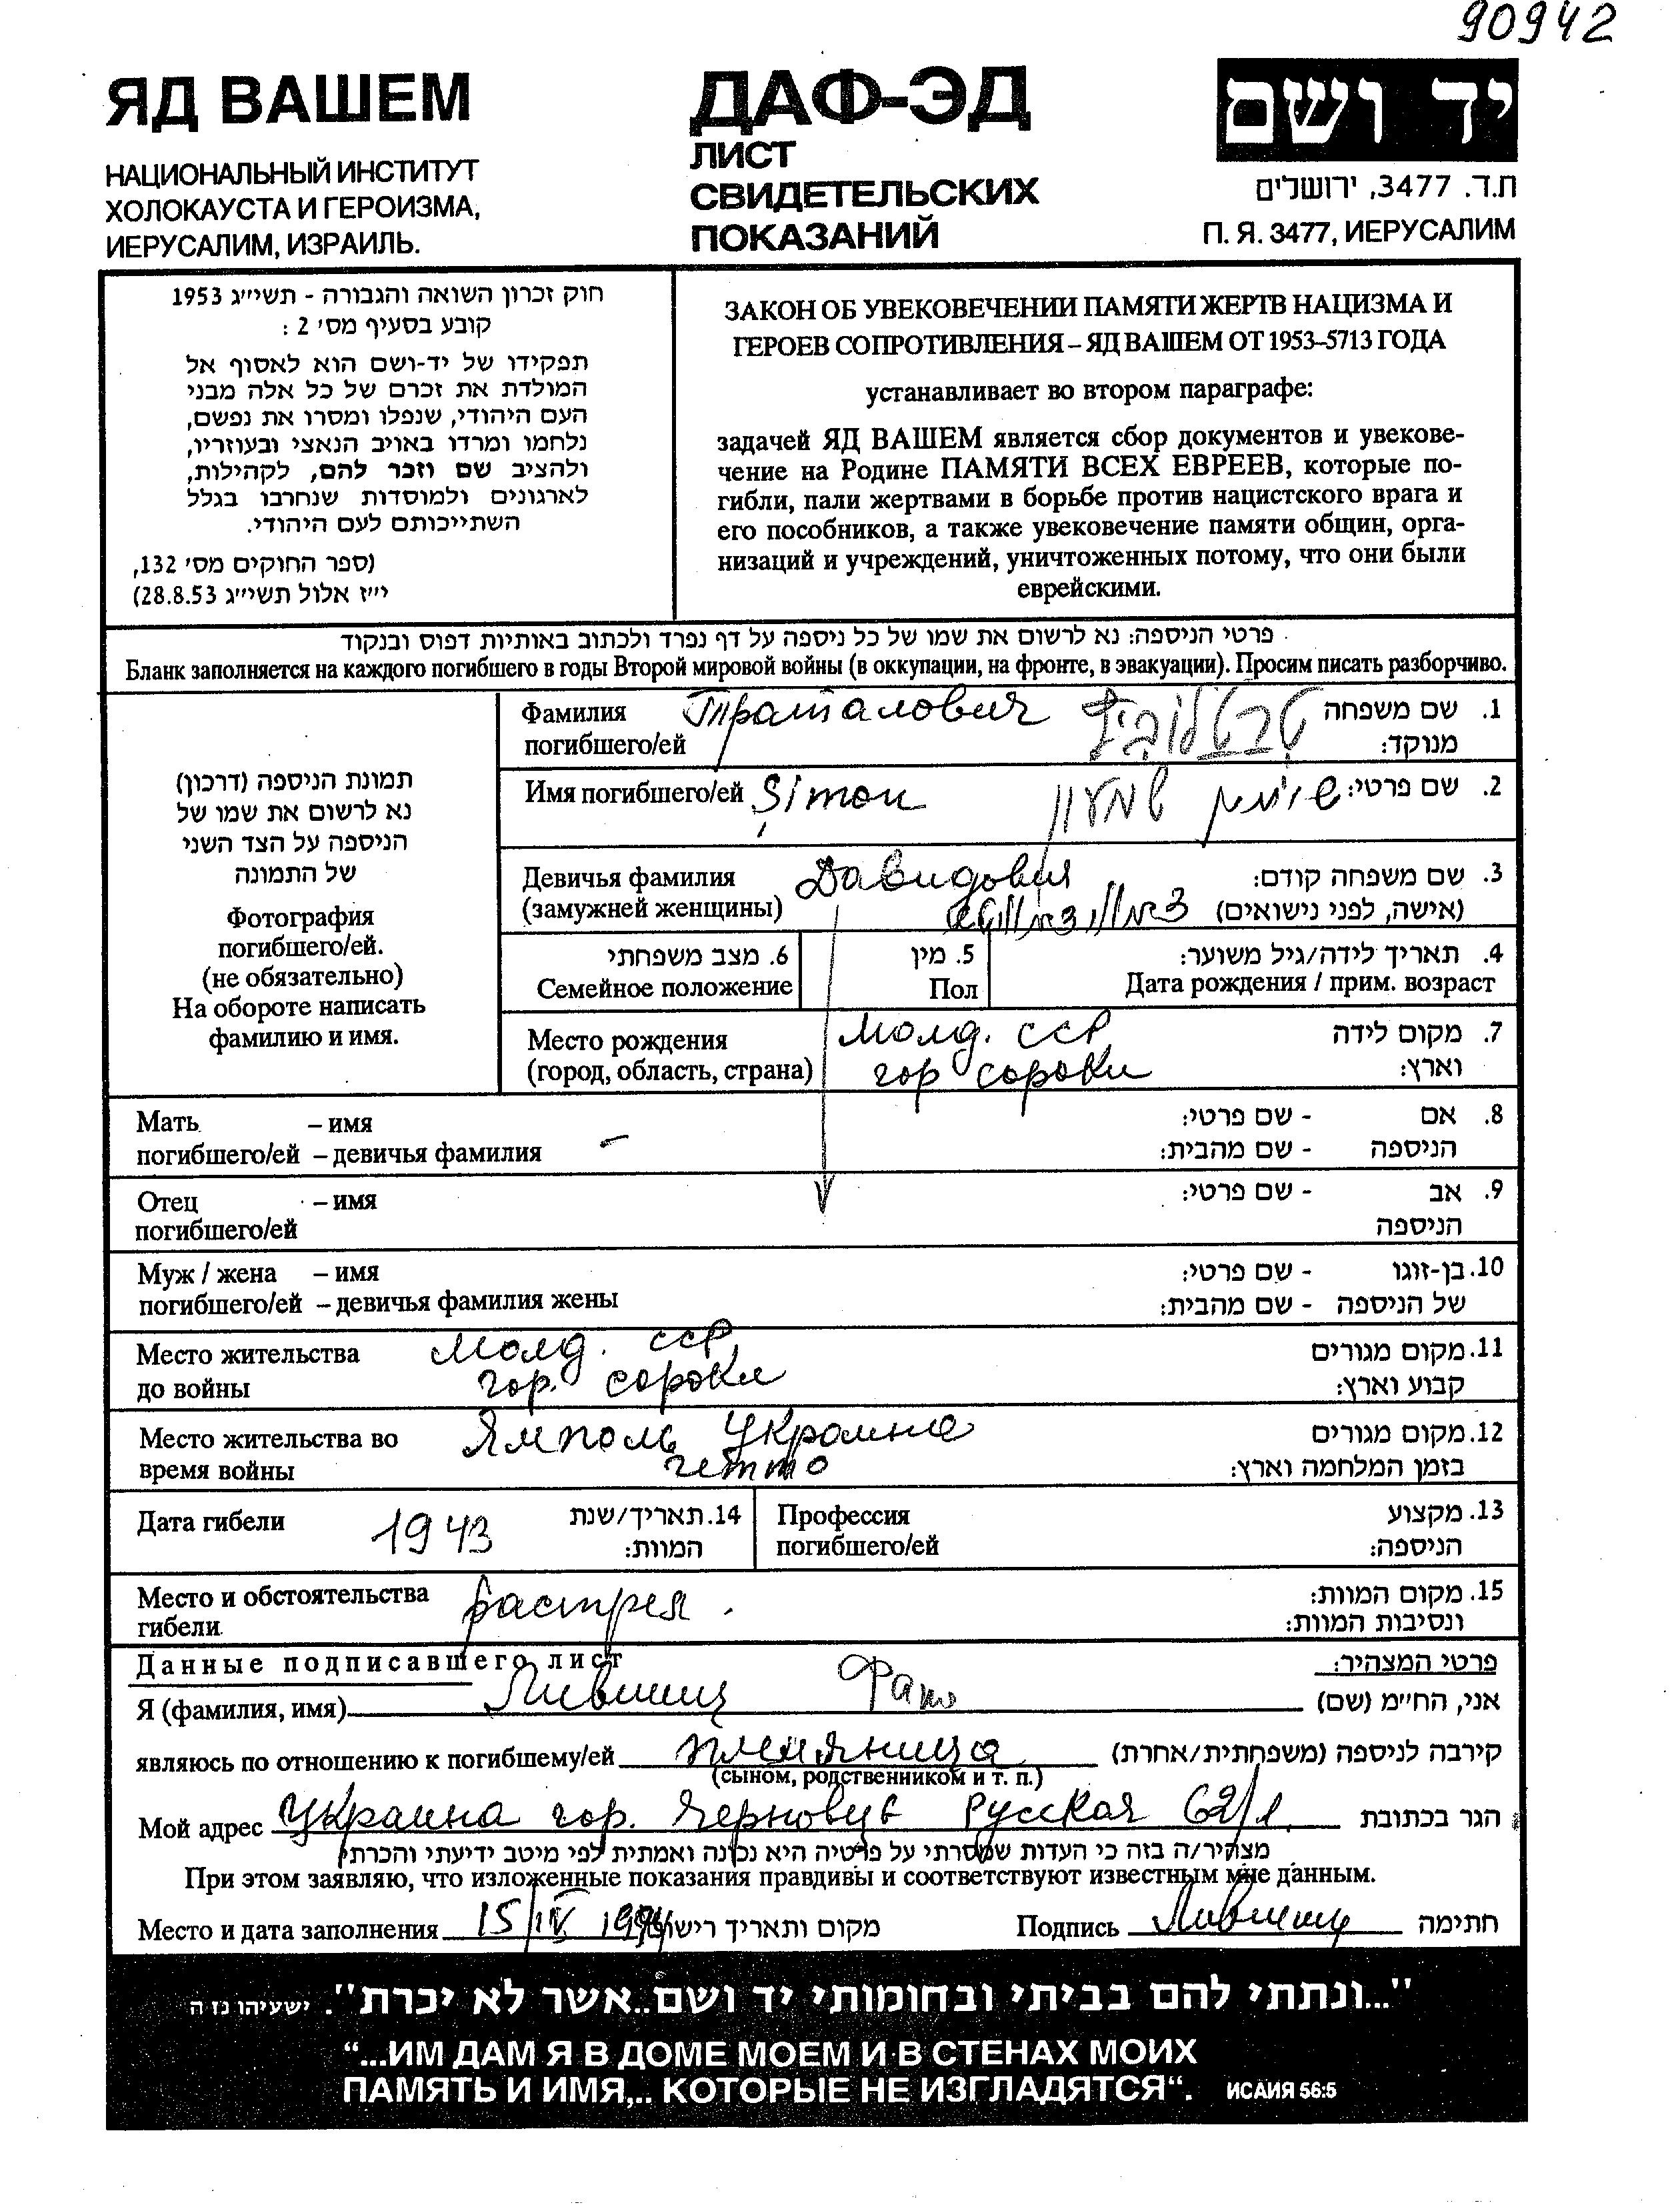 90942
ЯД ВАШЕМ
НАЦИОНАЛЬНЫЙ ИНСТИТУТ
ХОЛОКАУСТА И ГЕРОИЗМА,
ИЕРУСАЛИМ, ИЗРАИЛЬ.
ДАФ-ЭД
ЛИСТ
СВИДЕТЕЛЬСКИХ
ПОКАЗАНИЙ
יד ושם
ת.ד. 3477, ירושלים
П. Я. 3477, ИЕРУСАЛИМ
חוק זכרון השואה והגבורה - תשי״ג 1953
קובע בסעיף מס׳ 2 :
תפקידו של יד-ושם הוא לאסוף אל
המולדת את זכרם של כל אלה מבני
העם היהודי, שנפלו ומסרו את נפשם,
נלחמו ומרדו באויב הנאצי ובעוזריו,
ולהציב שם וזכר להם, לקהילות,
לארגונים ולמוסדות שנחרבו בגלל
השתייכותם לעם היהודי.
(ספר החוקים מס׳ 132,
י״ז אלול תשי״ג 28.8.53)
ЗАКОН ОБ УВЕКОВЕЧЕНИИ ПАМЯТИ ЖЕРТВ НАЦИЗМА И
ГЕРОЕВ СОПРОТИВЛЕНИЯ – ЯД ВАШЕМ ОТ 1953–5713 ГОДА
устанавливает во втором параграфе:
задачей ЯД ВАШЕМ является сбор документов и увекове-
чение на Родине ПАМЯТИ ВСЕХ ЕВРЕЕВ, которые по-
гибли, пали жертвами в борьбе против нацистского врага и
его пособников, а также увековечение памяти общин, орга-
низаций и учреждений, уничтоженных потому, что они были
еврейскими.
פרטי הניספה: נא לרשום את שמו של כל ניספה על דף נפרד ולכתוב באותיות דפוס ובנקוד
Бланк заполняется на каждого погибшего в годы Второй мировой войны (в оккупации, на фронте, в эвакуации). Просим писать разборчиво.
תמונת הניספה (דרכון)
נא לרשום את שמו של
הניספה על הצד השני
של התמונה
Фотография
погибшего/ей.
(не обязательно)
На обороте написать
фамилию и имя.
Фамилия Трашалович 1. שם משפחה
погибшего/ей מנוקד:
Имя погибшего/ей Şimon שמעון 2. שם פרטי:
Девичья фамилия Давидович 3. שם משפחה קודם:
(замужней женщины) (אישה, לפני נישואים)
6. מצב משפחתי 5. מין 4. תאריך לידה/גיל משוער:
Семейное положение Пол Дата рождения / прим. возраст
Место рождения Молд. ССР 7. מקום לידה
(город, область, страна) гор сороки וארץ:
Мать – имя 8. אם - שם פרטי:
погибшего/ей – девичья фамилия – הניספה - שם מהבית:
Отец – имя 9. אב - שם פרטי:
погибшего/ей הניספה
Муж / жена – имя 10. בן-זוגו - שם פרטי:
погибшего/ей – девичья фамилия жены של הניספה - שם מהבית:
Место жительства Молд. ССР 11. מקום מגורים
до войны гор. сороки קבוע וארץ:
Место жительства во Ямполь Украина 12. מקום מגורים
время войны гетто בזמן המלחמה וארץ:
Дата гибели 1943 14. תאריך/שנת Профессия 13. מקצוע
המוות: погибшего/ей הניספה:
Место и обстоятельства растрел. 15. מקום המוות:
гибели ונסיבות המוות:
Данные подписавшего лист פרטי המצהיר:
Я (фамилия, имя) Лившиц אני, הח״מ (שם)
являюсь по отношению к погибшему/ей племяница קירבה לניספה (משפחתית/אחרת)
(сыном, родственником и т. п.)
Мой адрес Украина гор. Черновцы Русская 62/1 הגר בכתובת
מצהיר/ה בזה כי העדות שמסרתי על פרטיה היא נכונה ואמתית לפי מיטב ידיעתי והכרתי
При этом заявляю, что изложенные показания правдивы и соответствуют известным мне данным.
Место и дата заполнения 15/IV 1994 מקום ותאריך רישום Подпись Лившиц חתימה
"...ונתתי להם בביתי ובחומותי יד ושם..אשר לא יכרת". ישעיהו נז ה
“...ИМ ДАМ Я В ДОМЕ МОЕМ И В СТЕНАХ МОИХ
ПАМЯТЬ И ИМЯ,.. КОТОРЫЕ НЕ ИЗГЛАДЯТСЯ“. ИСАИЯ 56:5